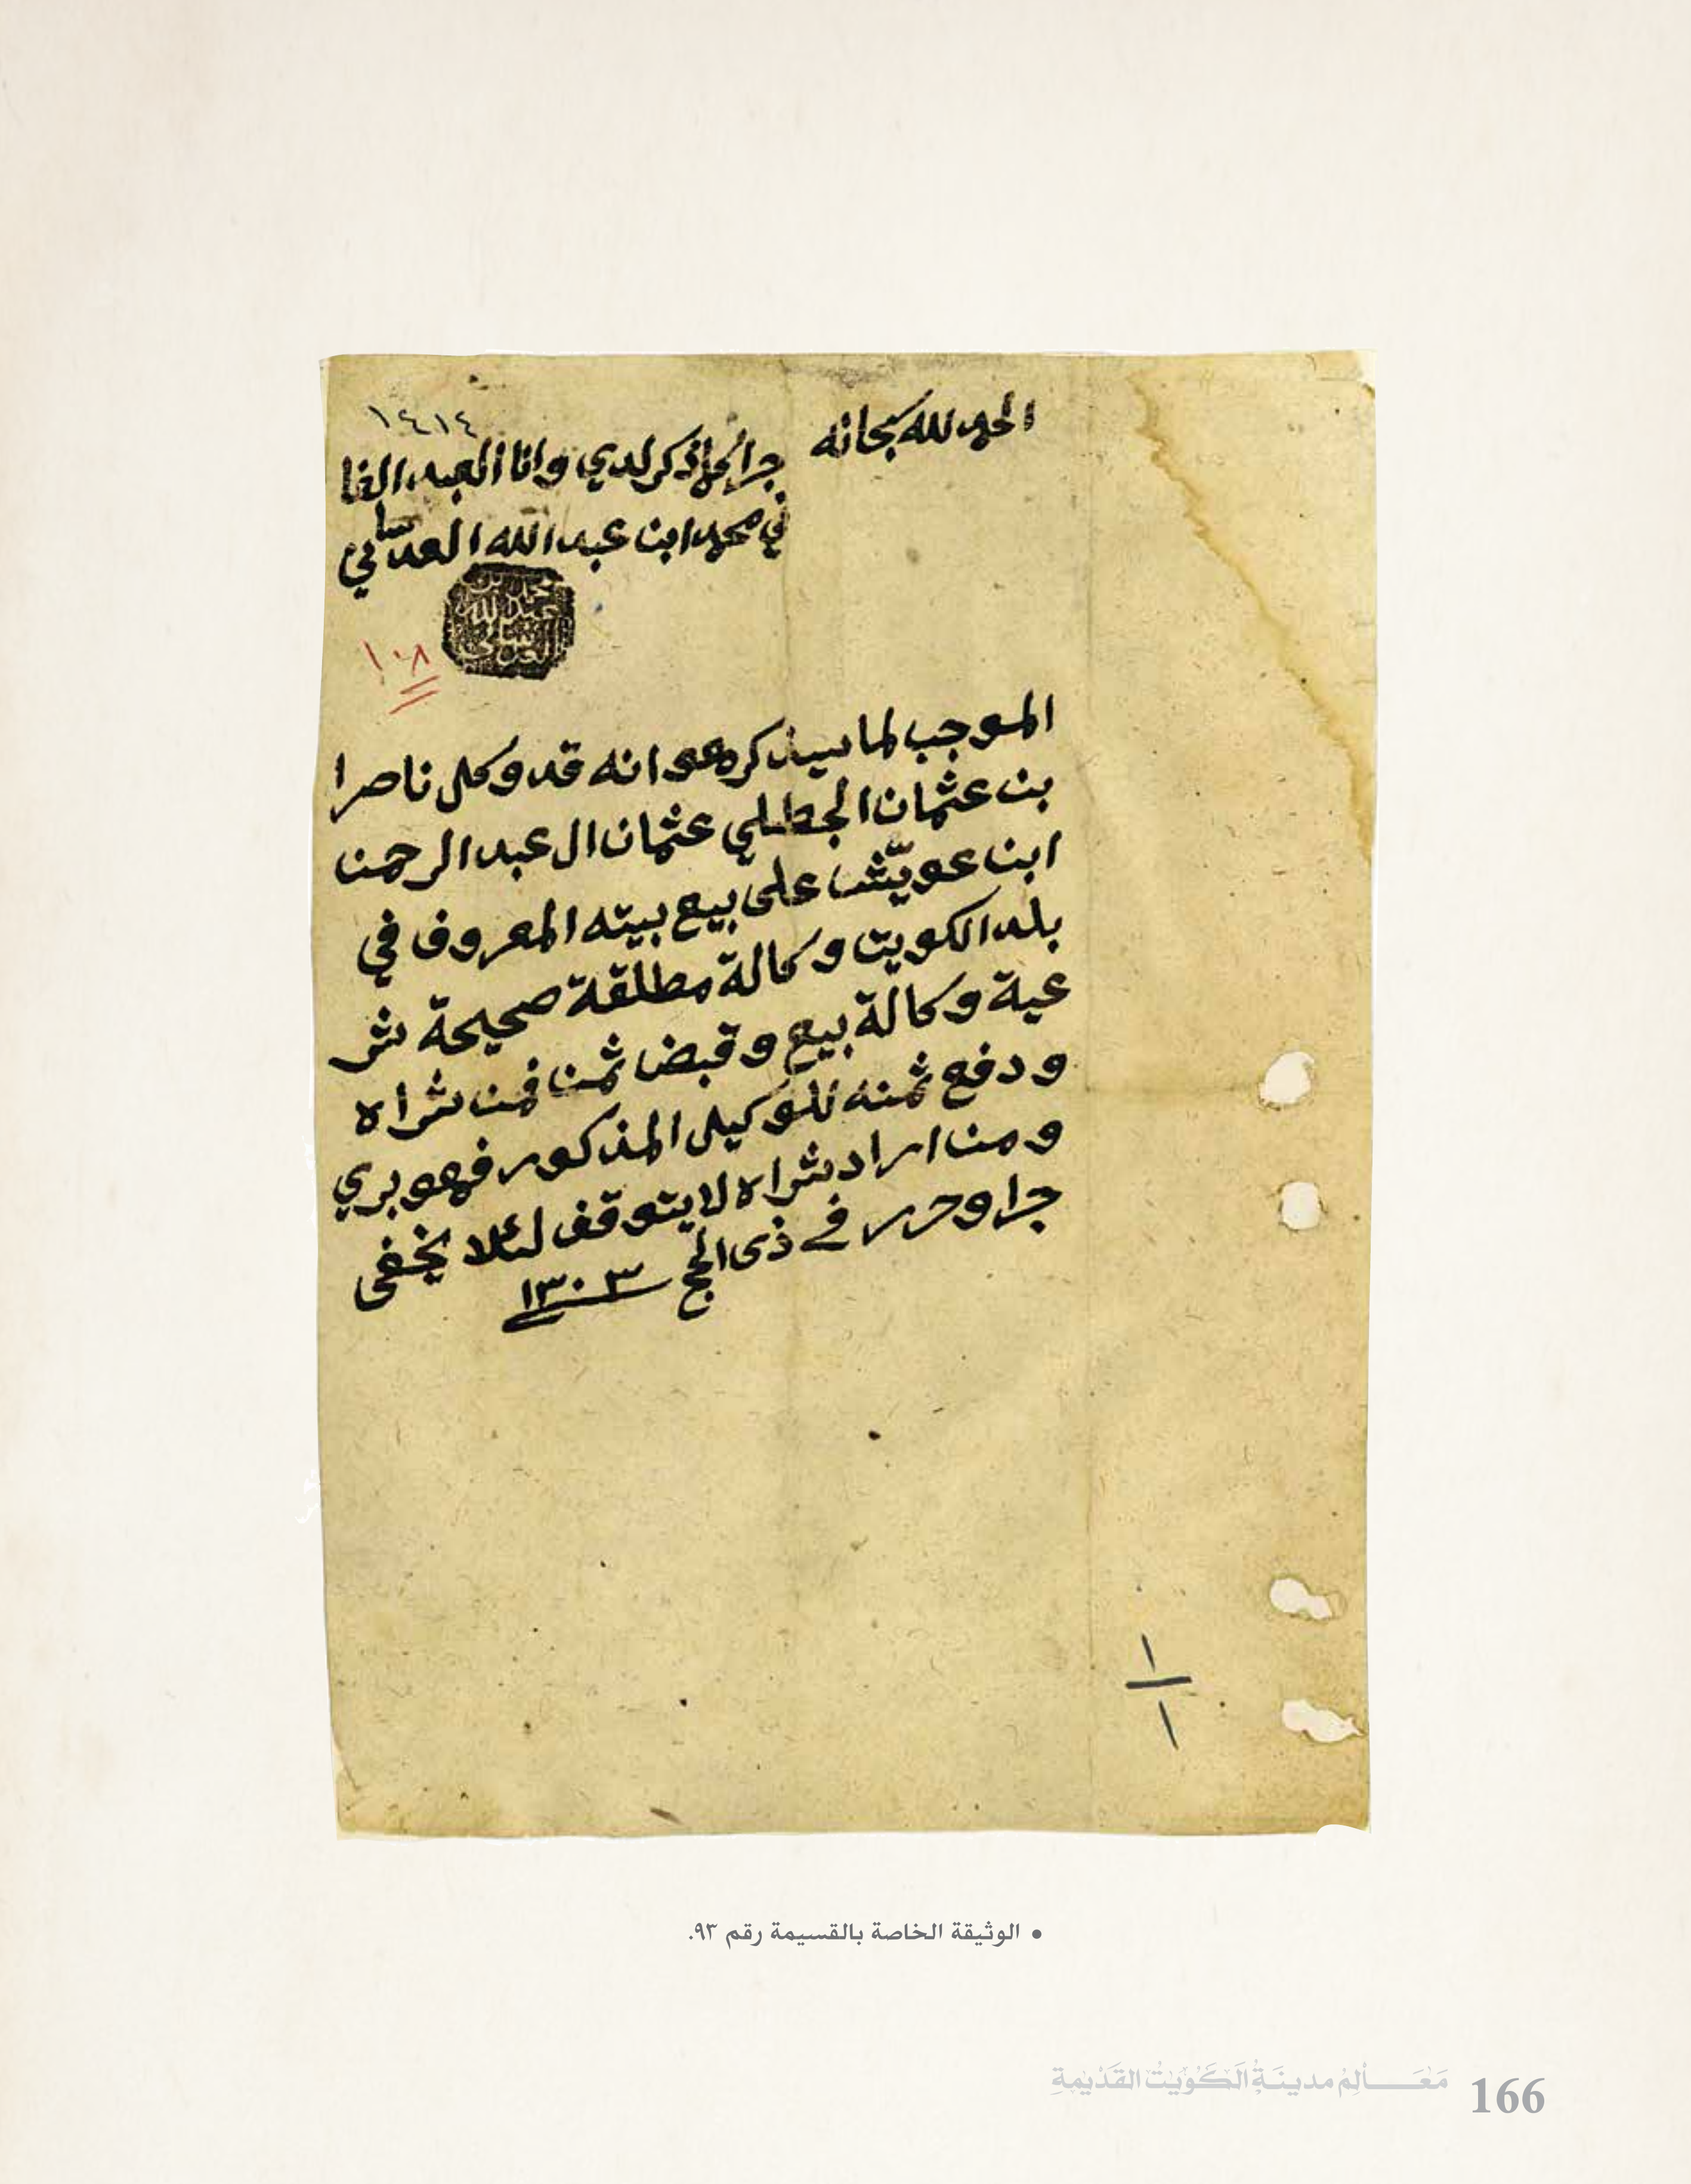 ١٤١٤
الحمد لله سبحانه
جرا كما ذكر لدي وانا العبد الفا
ني محمد ابن عبد الله العدساني
محمد بن
عبد الله
العدساني
١٠٨
الموجب لما سيذكر هو انه قد وكل ناصرا
بن عثمان الجطيلي عثمان ال عبد الرحمن
ابن عويّش على بيع بيته المعروف في
بلد الكويت وكالة مطلقة صحيحة شر
عية وكالة بيع وقبض ثمن فمن شراه
ودفع ثمنه للوكيل المذكور فهو بري
ومن اراد شراه لا يتوقف لئلا يخفى
جرا وحرر في ذي الحج ١٣٠٣
١
١
• الوثيقة الخاصة بالقسيمة رقم ٩٣.
مَعَـــالِمُ مدينَةِ الكُوَيْتِ القَدِيْمَةِ 166